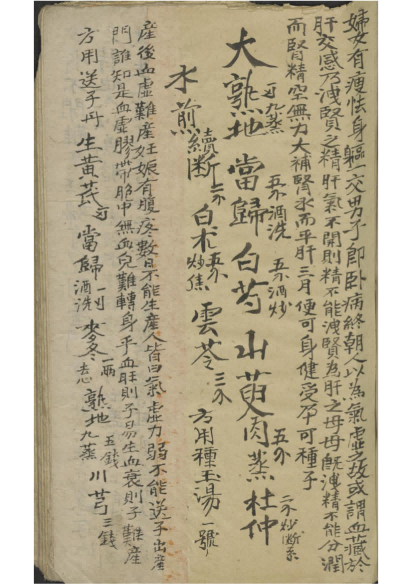 婦女有瘦怯身軀一交男子即卧病終朝人以為氣虛之故或謂血藏於
肝交感乃洩腎之精肝氣不開則精不能洩腎為肝之母母旣洩精不能分潤
而腎精空無力大補腎水而平肝三月便可身健受孕可種子
大熟地 九蒸 當歸 五錢酒洗 白芍 五錢酒炒 山萸肉蒸 五錢 杜仲 二錢炒斷系
續斷 白术 炒焦 雲苓 三錢 方用種玉湯一號
水煎
產後血虛難產妊娠有腹疼數日不能生產人皆曰氣虛力弱不能送子出產
門誰知是血虛膠帶胞中無血兒難轉身乎血旺則子易生血衰則子難產
方用送子丹 生黃芪 當歸 酒洗 麥冬 一兩去心 熟地 五錢九蒸 川芎 三錢